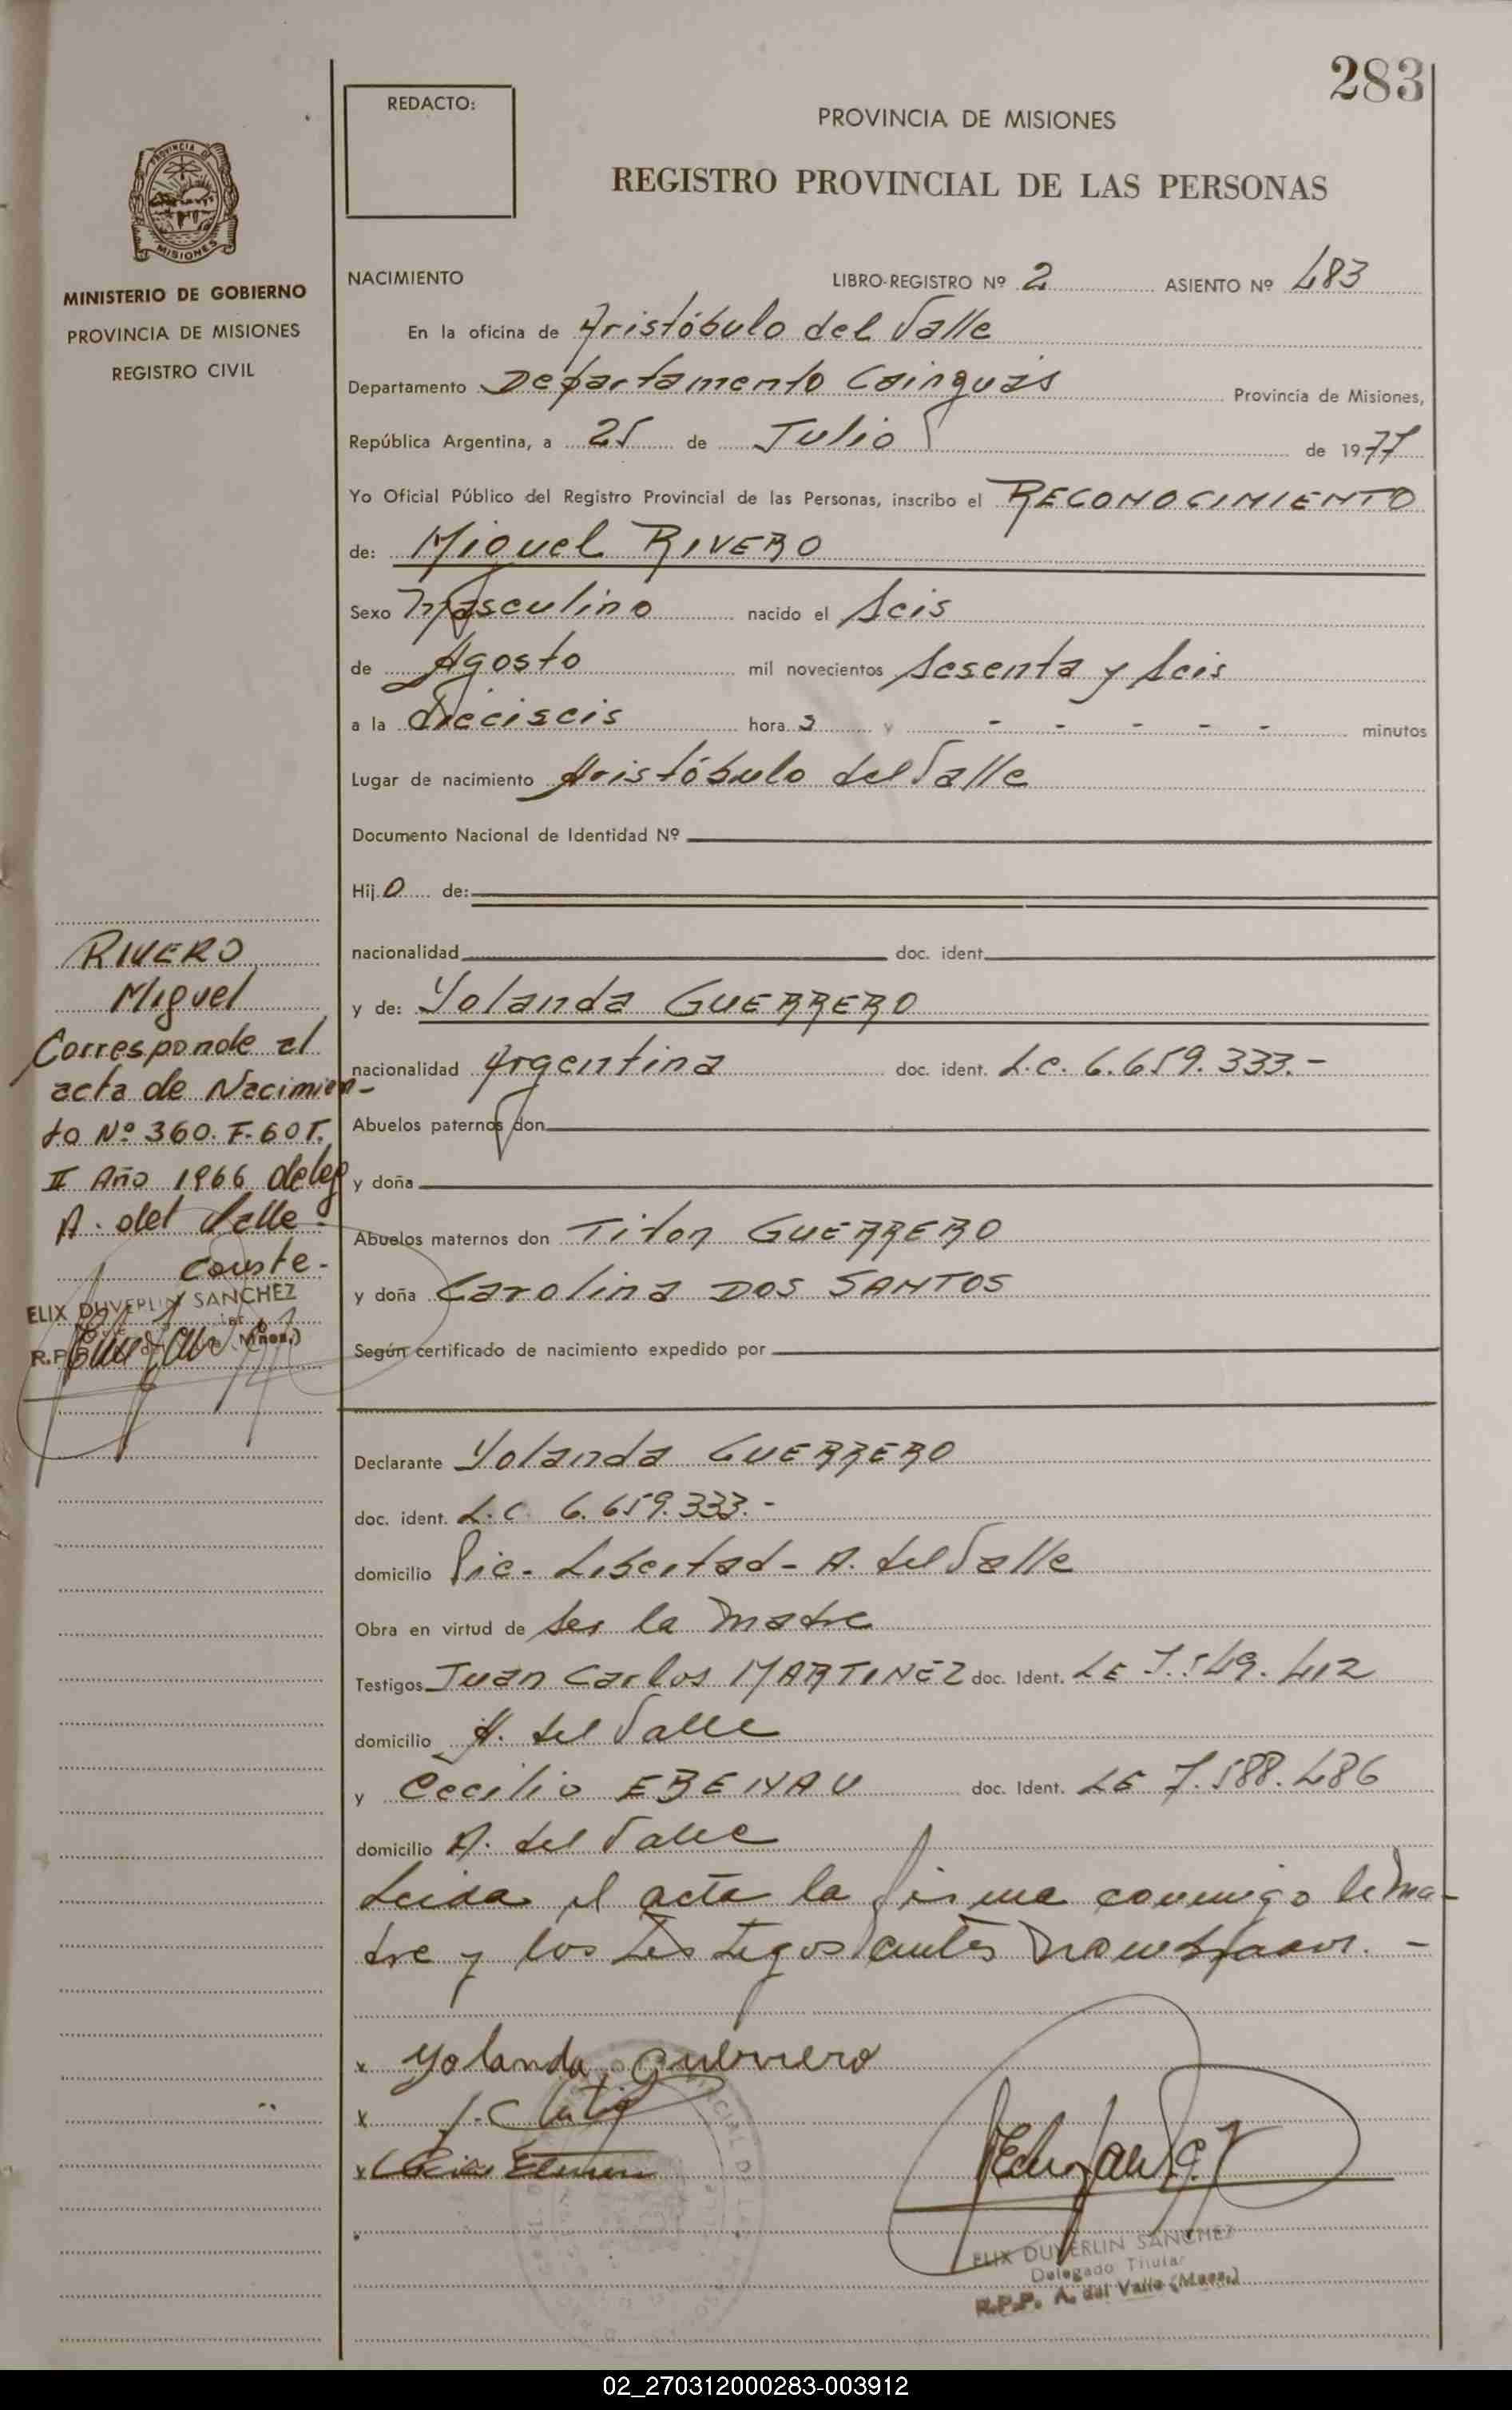 283
REDACTO:
PROVINCIA DE MISIONES
REGISTRO PROVINCIAL DE LAS PERSONAS
PROVINCIA DE
MISIONES
MINISTERIO DE GOBIERNO
PROVINCIA DE MISIONES
REGISTRO CIVIL
NACIMIENTO LIBRO-REGISTRO Nº 2 ASIENTO Nº 483
En la oficina de Aristóbulo del Valle
Departamento Departamento Cainguás Provincia de Misiones,
República Argentina, a 25 de Julio de 1977
Yo Oficial Público del Registro Provincial de las Personas, inscribo el RECONOCIMIENTO
de: Miguel RIVERO
Sexo Masculino nacido el Seis
de Agosto mil novecientos Sesenta y Seis
a la dieciseis hora s y - - - - - minutos
Lugar de nacimiento Aristóbulo del Valle
Documento Nacional de Identidad Nº
Hij o de:
nacionalidad doc. ident.
y de: Yolanda GUERRERO
nacionalidad Argentina doc. ident. L.C. 6.659.333.-
Abuelos paternos don
y doña
Abuelos maternos don Titon GUERRERO
y doña Carolina DOS SANTOS
Según certificado de nacimiento expedido por
Declarante Yolanda GUERRERO
doc. ident. L.C. 6.659.333.-
domicilio Pic. Libertad - A. del Valle
Obra en virtud de ser la madre
Testigos Juan Carlos MARTINEZ doc. Ident. LE 7.549.412
domicilio A. del Valle
y Cecilio EBENAU doc. Ident. LE 7.588.486
domicilio A. del Valle
Leida el acta la firma conmigo la ma-
dre y los testigos antes nombrados. -
x Yolanda Guerrero
x
x
ELIX DUVERLIN SANCHEZ
Delegado Titular
R.P.P. A. del Valle (Mnes.)
RIVERO
Miguel
Corresponde al
acta de Nacimien-
to Nº 360. F. 60 T.
II Año 1966 deleg
A. del Valle.
Conste.-
ELIX DUVERLIN SANCHEZ
02_270312000283-003912